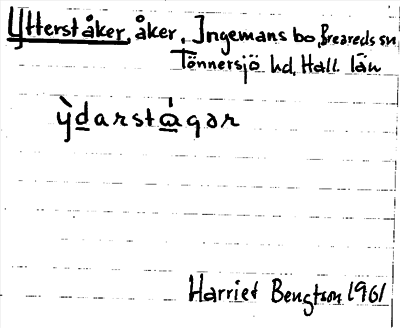 Ytterståker, åker, Ingemans bo, Breareds sn
Tönnersjö hd, Hall. län
ỳdarstágər
Harriet Bengtson 1961